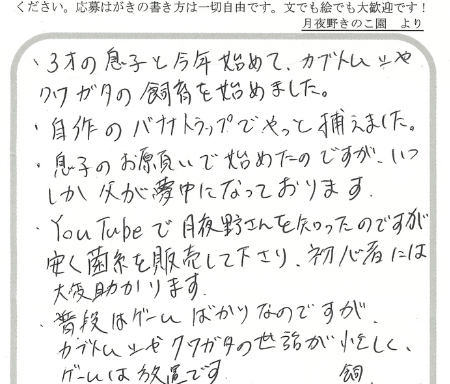 ください。応募はがきの書き方は一切自由です。文でも絵でも大歓迎です!
月夜野きのこ園 より
・3才の息子と今年始めて、カブトムシや
クワガタの飼育を始めました。
・自作のバナナトラップでやっと捕えました。
・息子のお願いで始めたのですが、いつ
しか父が夢中になっております。
・YouTubeで月夜野さんを知ったのですが
安く菌糸を販売して下さり、初心者には
大変助かります。
・普段はゲームばかりなのですが、
カブトムシやクワガタの世話が忙しく、
ゲームは放置です。 飼